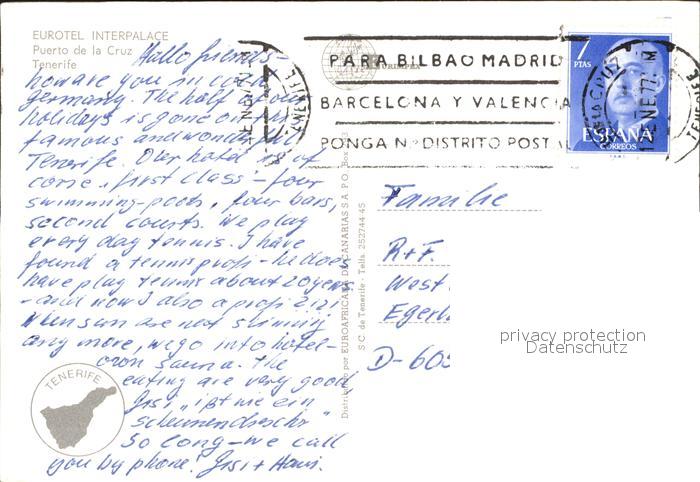 EUROTEL INTERPALACE
Puerto de la Cruz
Tenerife
Hallo friends -
how are you in
Germany. The half of our
holidays is gone on
famous and wonderful
Tenerife. Our hotel is of
corse "first class" - four
swimming-pools, four bars,
second courts. We play
every day tennis. I have
found a tennis profi - he does
have play tennis about 20 years
- and now I also a profi
sun are not shining
any more, we go into hotel-
own sauna. The
eating are very good
Gisi "ißt wie ein
Scheunendrescher"
So long - we call
you by phone! Gisi + Hans.
TENERIFE
Distribuido por EUROAFRICANA DE CANARIAS S A P.O. Box
S/C de Tenerife - Telfs. 252744-45
PARA BILBAO MADRID
BARCELONA Y VALENCIA
PONGA N.º DISTRITO POSTAL
7
PTAS
ESPAÑA
CORREOS
12 NE. 77
Familie
R + F.
West
Egerl
D-60
privacy protection
Datenschutz